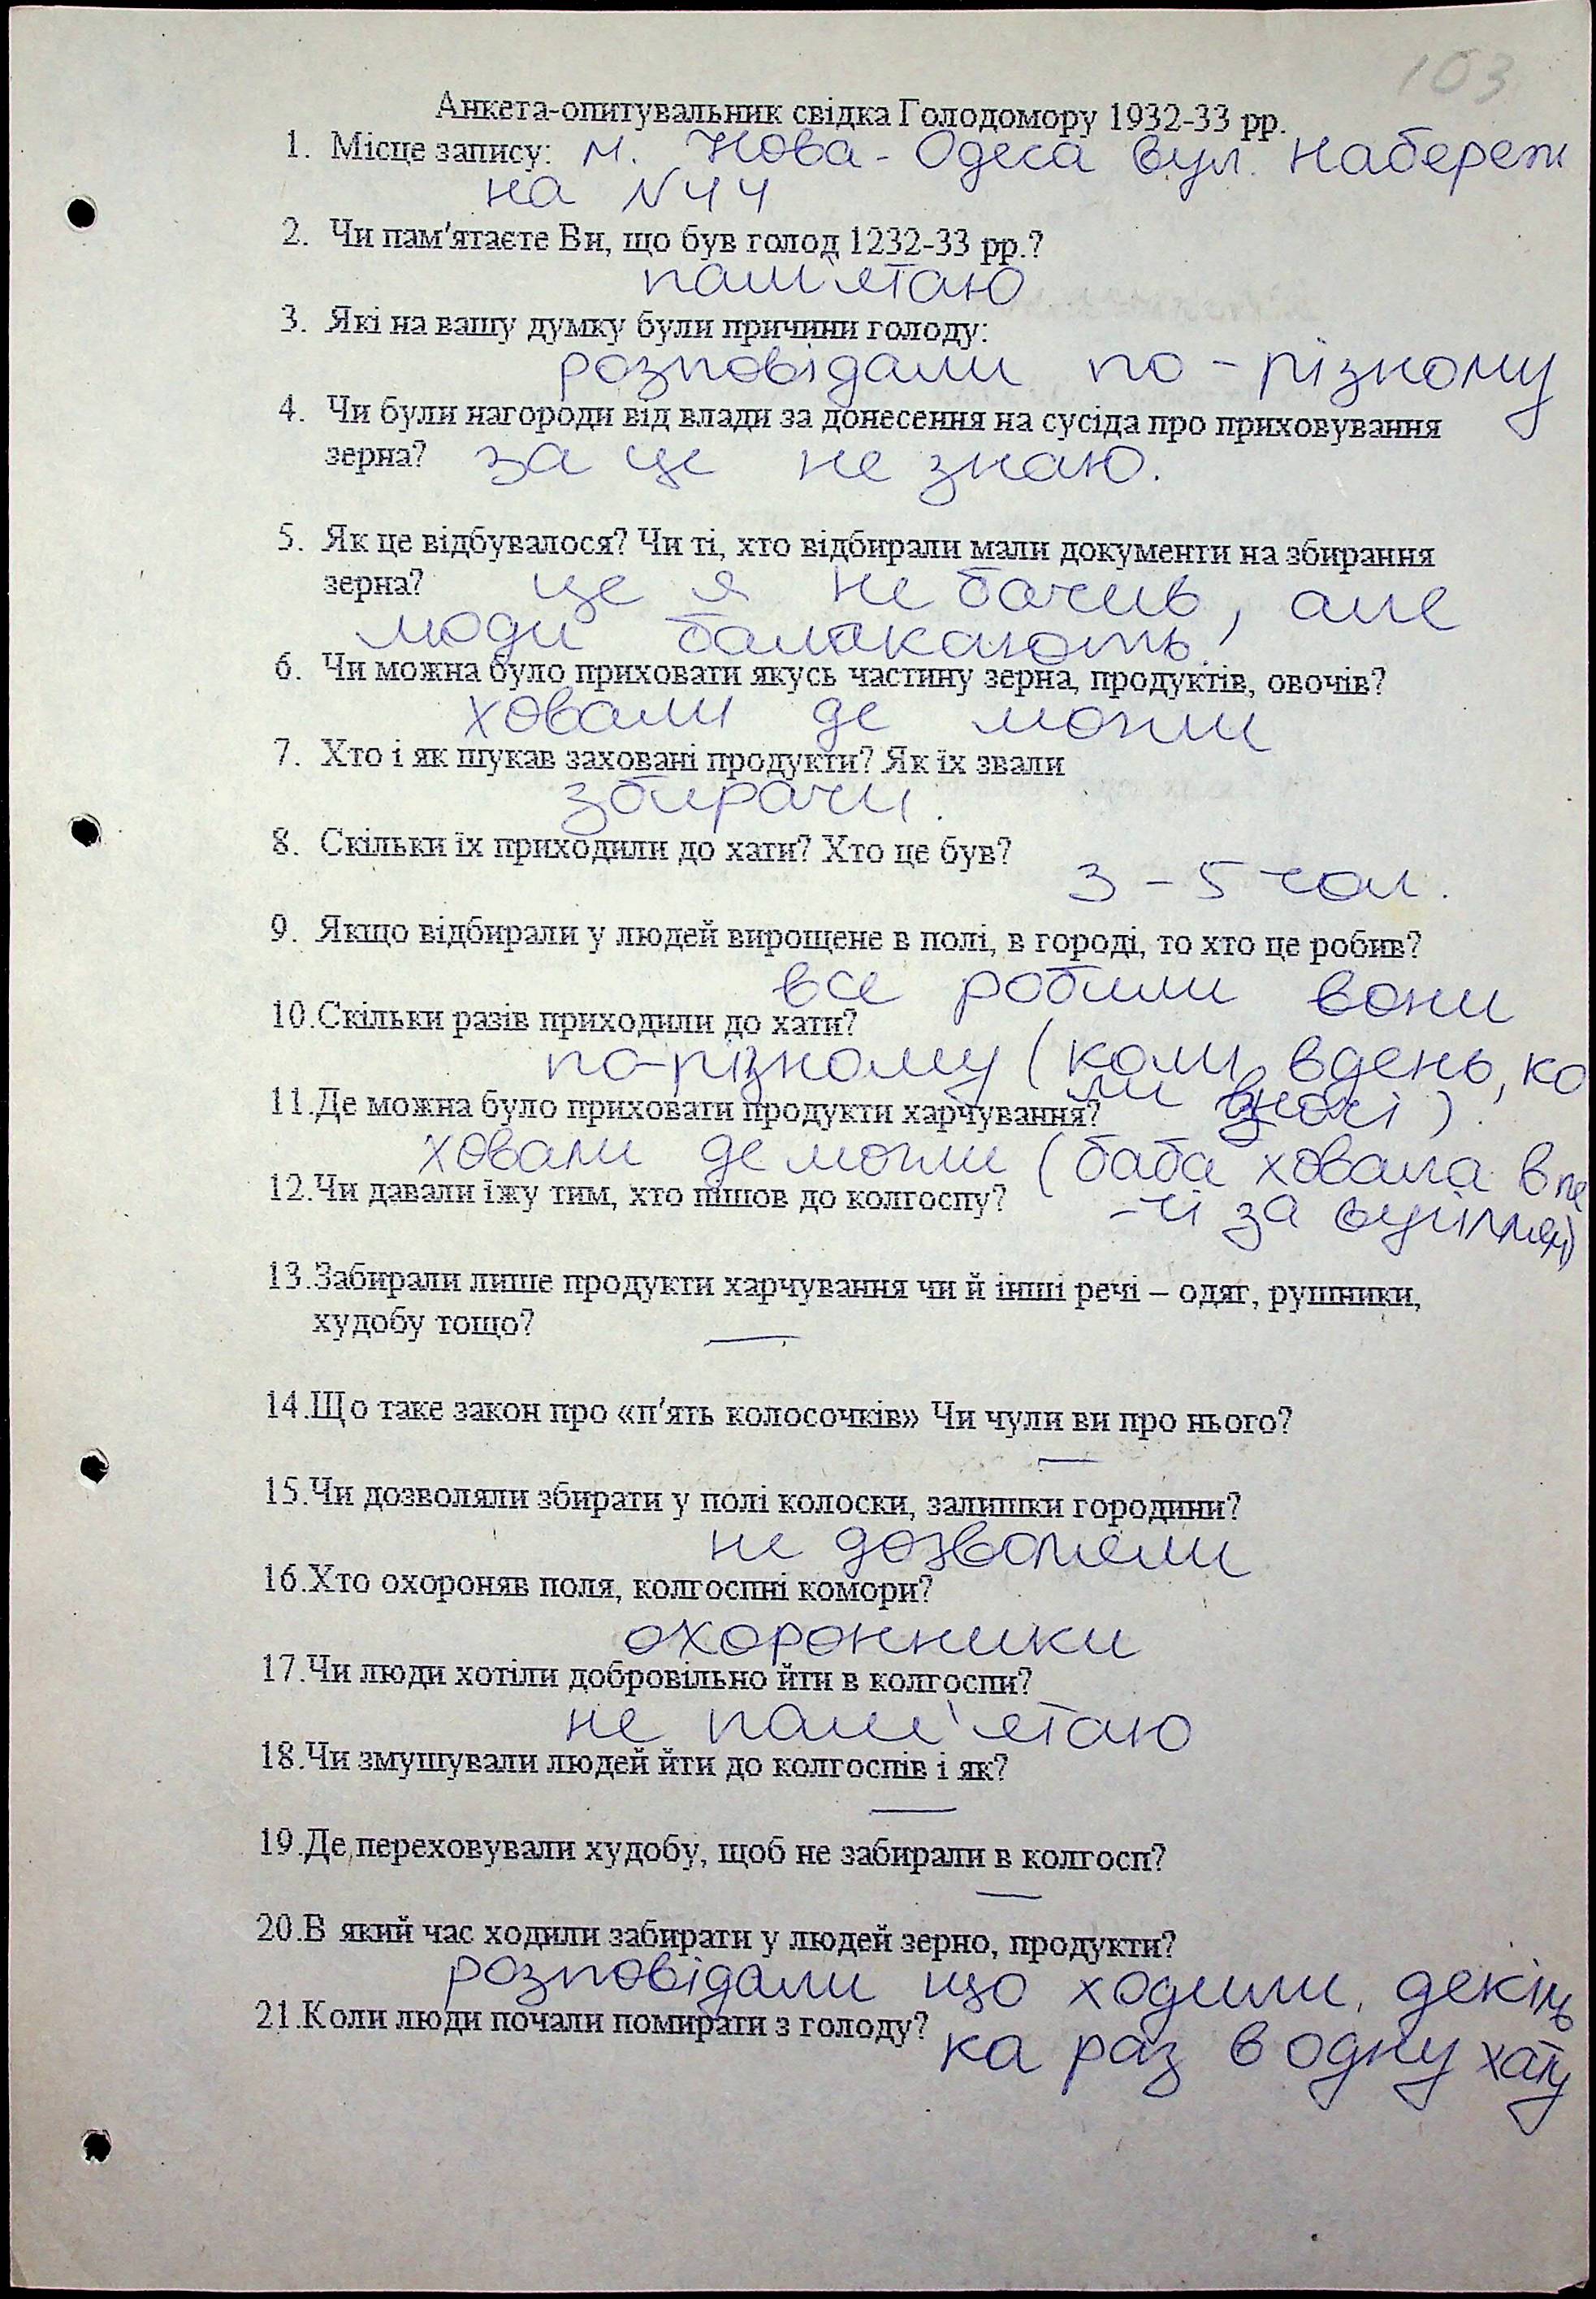 103
Анкета-опитувальник свідка Голодомору 1932-33 рр.
1. Місце запису: м. Нова-Одеса вул. Набереж
на №44
2. Чи пам'ятаєте Ви, що був голод 1232-33 рр.?
пам'ятаю
3. Які на вашу думку були причини голоду:
розповідали по-різному
4. Чи були нагороди від влади за донесення на сусіда про приховування
зерна? за це не знаю.
5. Як це відбувалося? Чи ті, хто відбирали мали документи на збирання
зерна? це я не бачив, але
люди балакають.
6. Чи можна було приховати якусь частину зерна, продуктів, овочів?
ховали де могли
7. Хто і як шукав заховані продукти? Як їх звали
збирачи.
8. Скільки їх приходили до хати? Хто це був?
3 – 5 чол.
9. Якщо відбирали у людей вирощене в полі, в городі, то хто це робив?
все робили вони
10.Скільки разів приходили до хати?
по-різному (коли вдень, ко
ли вночі).
11.Де можна було приховати продукти харчування?
ховали де могли (баба ховала в пе
-чі за вугіллям)
12.Чи давали їжу тим, хто пішов до колгоспу?
13.Забирали лише продукти харчування чи й інші речі – одяг, рушники,
худобу тощо? —
14.Що таке закон про «п'ять колосочків» Чи чули ви про нього?
—
15.Чи дозволяли збирати у полі колоски, залишки городини?
не дозволяли
16.Хто охороняв поля, колгоспні комори?
охоронники
17.Чи люди хотіли добровільно йти в колгоспи?
не пам'ятаю
18.Чи змушували людей йти до колгоспів і як?
—
19.Де переховували худобу, щоб не забирали в колгосп?
—
20.В який час ходили забирати у людей зерно, продукти?
розповідали що ходили декіль
ка раз в одну хату
21.Коли люди почали помирати з голоду?